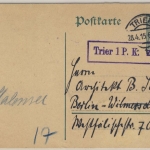 Postkarte
TRIER
28.4.15
Trier I P. K.
Herrn
Architekt B.
Berlin-Wilmersdorf
Westfälischestr. 70
17